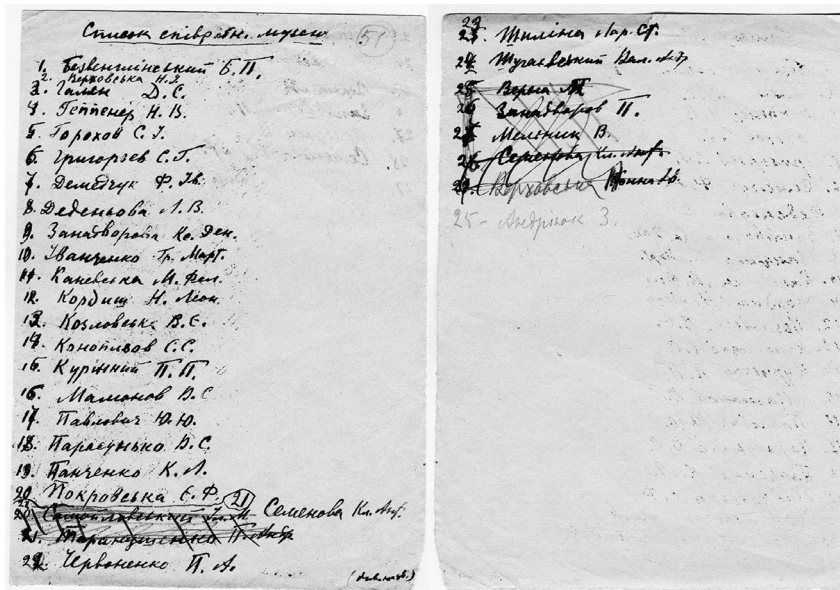 Список співробітн. музею 51
1. Безвенглінський Б.П.
2. Верховська Н.Я
3. Галян Д. Є.
4. Геппенер Н. В.
5. Горохов С. І.
6. Григорʼєв С.Г.
7. Демедчук Ф. Ів.
8. Деденьова Л.В.
9. Занадворова Ке. Ден.
10. Іванченко Гр. Март.
11. Каневська М. Фел.
12. Кордиш Н. Леон.
13. Козловська В.Є.
14. Конопизов С.С.
15. Курінний П. П.
16. Мамонов В.С
17. Павлович Ю.Ю.
18. Парасунько В.С.
19. Панченко К. Л.
20 Покровська Є.Ф. 21
Самойловський Семенова Кл. Анф.
Таранушенко П. Андр
22. Червоненко П. А.
23. Шиліна Лар. Ст.
24. Шугаєвський Вал. Ант
25 Верна
26 Занадворов П.
Мельник В.
Семенова Кл. Анф.
Верховська
25 - Андріюк З.